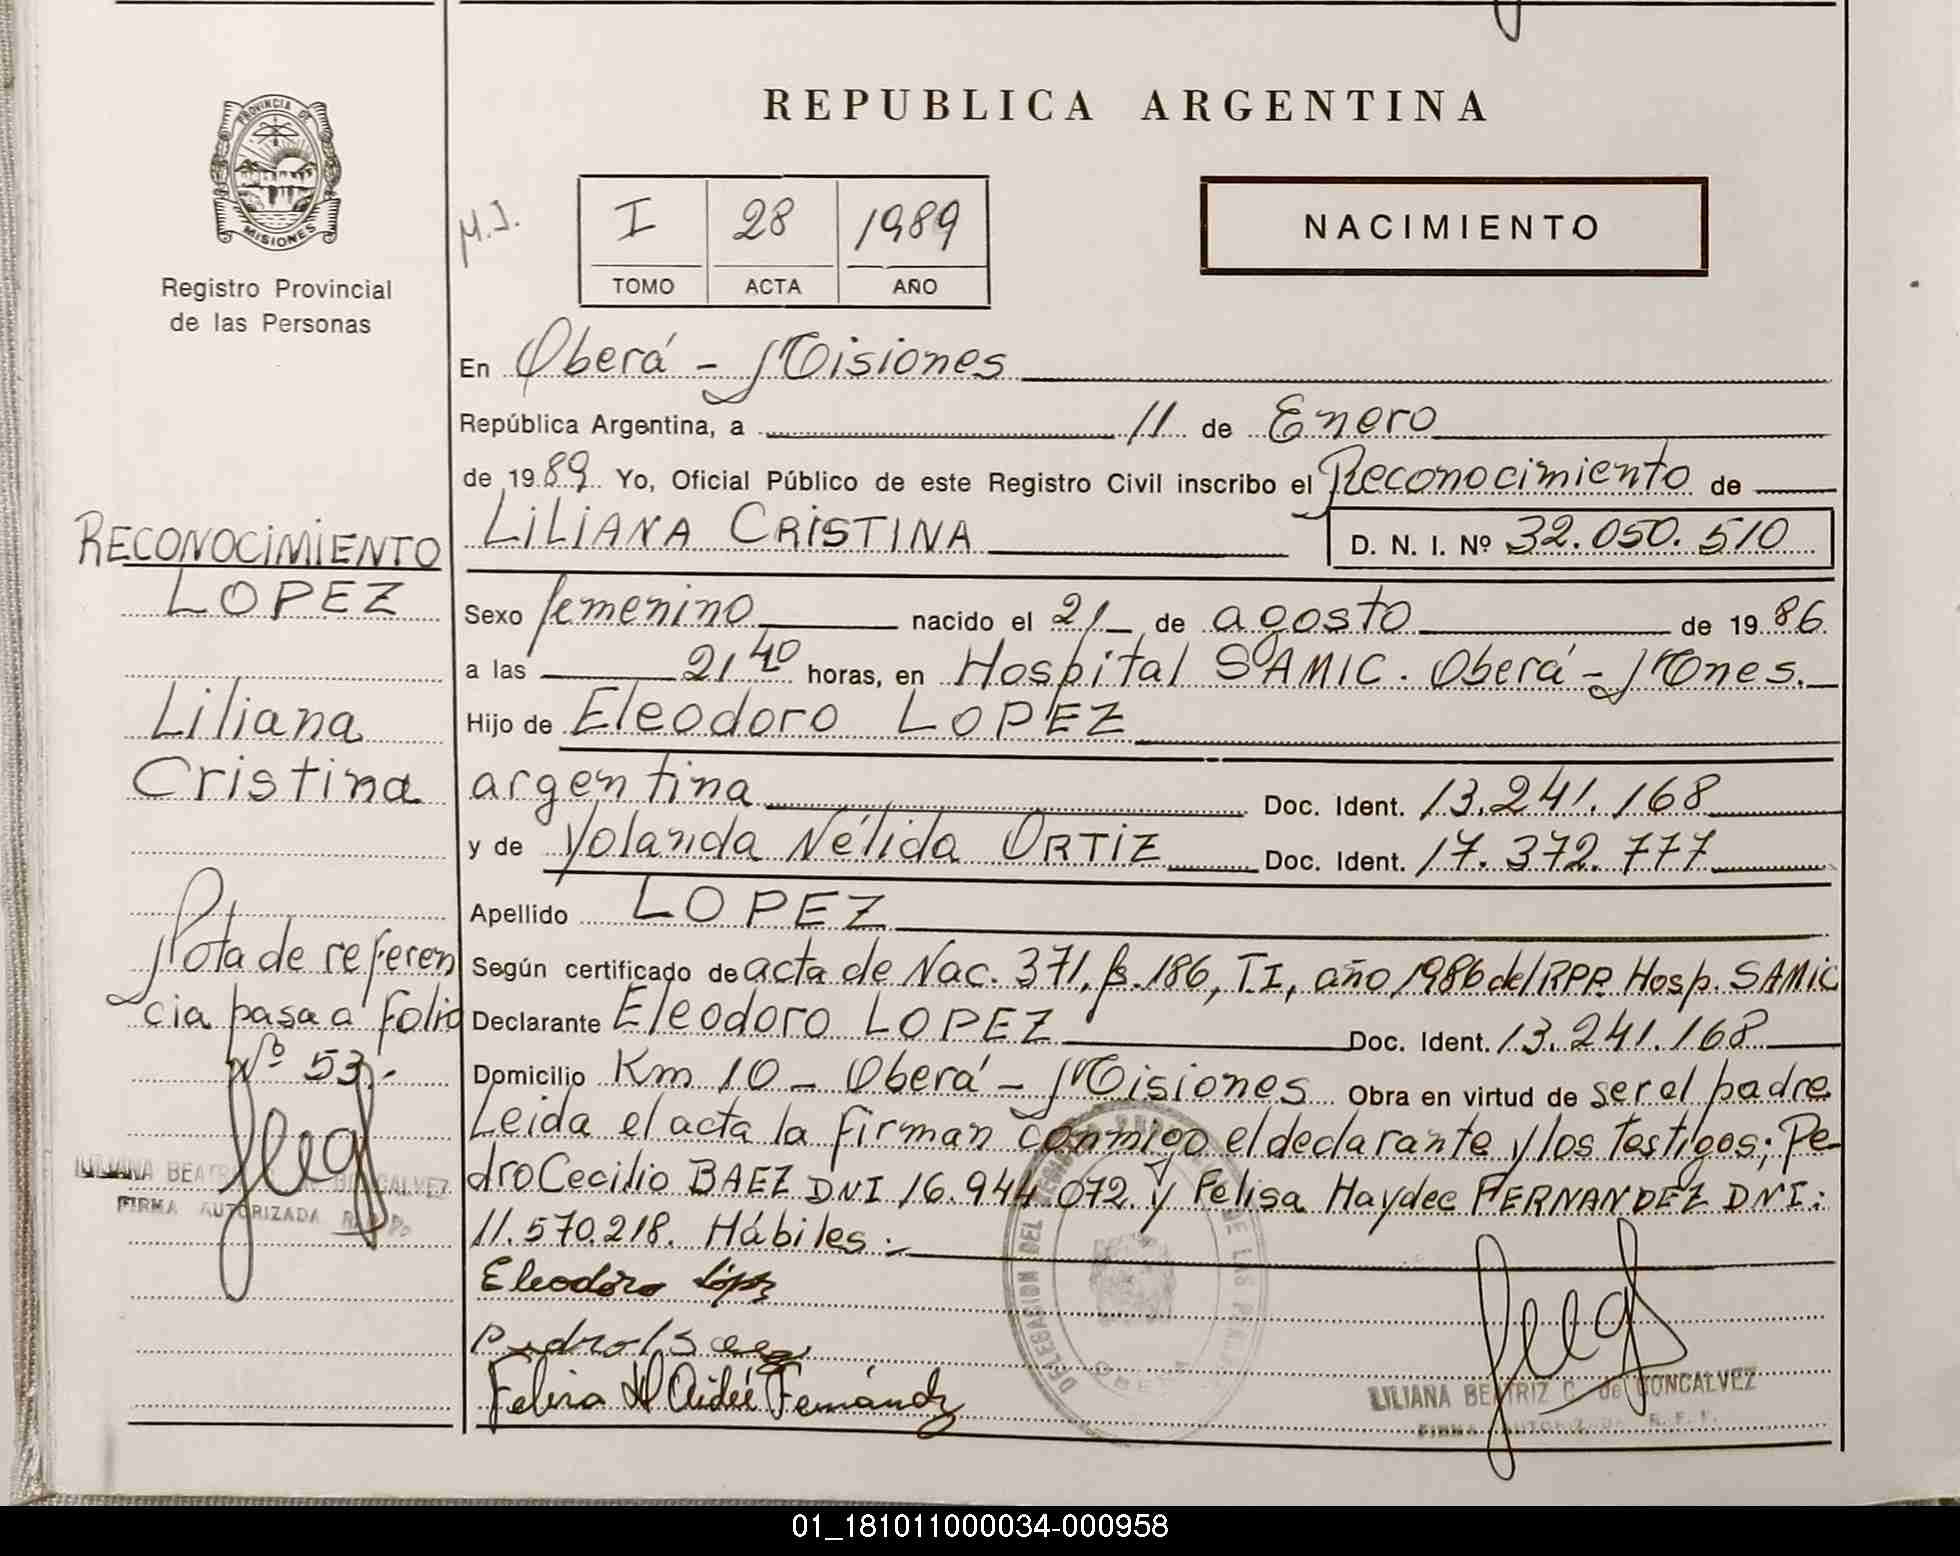 REPUBLICA ARGENTINA
PROVINCIA DE
MISIONES
Registro Provincial
de las Personas
M.I.
I 28 1989
TOMO ACTA AÑO
NACIMIENTO
En Oberá - Misiones
República Argentina, a 11 de Enero
de 1989 Yo, Oficial Público de este Registro Civil inscribo el Reconocimiento de
LILIANA CRISTINA D. N. I. Nº 32.050.510
Sexo femenino nacido el 21 de agosto de 1986
a las 21 40 horas, en Hospital SAMIC. Oberá - Mones.
Hijo de Eleodoro LOPEZ
argentina Doc. Ident. 13.241.168
y de Yolanda Nélida ORTIZ Doc. Ident. 17.372.777
Apellido LOPEZ
Según certificado de acta de Nac. 371, fs. 186, T.I, año 1986 del RPP. Hosp. SAMIC
Declarante Eleodoro LOPEZ Doc. Ident. 13.241.168
Domicilio Km 10 - Oberá - Misiones Obra en virtud de ser el padre
Leida el acta la firman conmigo el declarante y los testigos; Pe-
dro Cecilio BAEZ DNI 16.944.072 y Felisa Haydee FERNANDEZ DNI:
11.570.218. Hábiles.-
Eleodoro López
Pedro Baez
Felisa H Aideé Fernández
LILIANA BEATRIZ C. de GONCALVEZ
FIRMA AUTORIZADA R. P. P.
RECONOCIMIENTO
LOPEZ
Liliana
Cristina
Nota de referen
cia pasa a Folio
Nº 53.-
LILIANA BEATRIZ C. DE GONCALVEZ
FIRMA AUTORIZADA
DELEGACION DEL REGISTRO PROVINCIAL DE LAS PERSONAS
OBERA
01_181011000034-000958